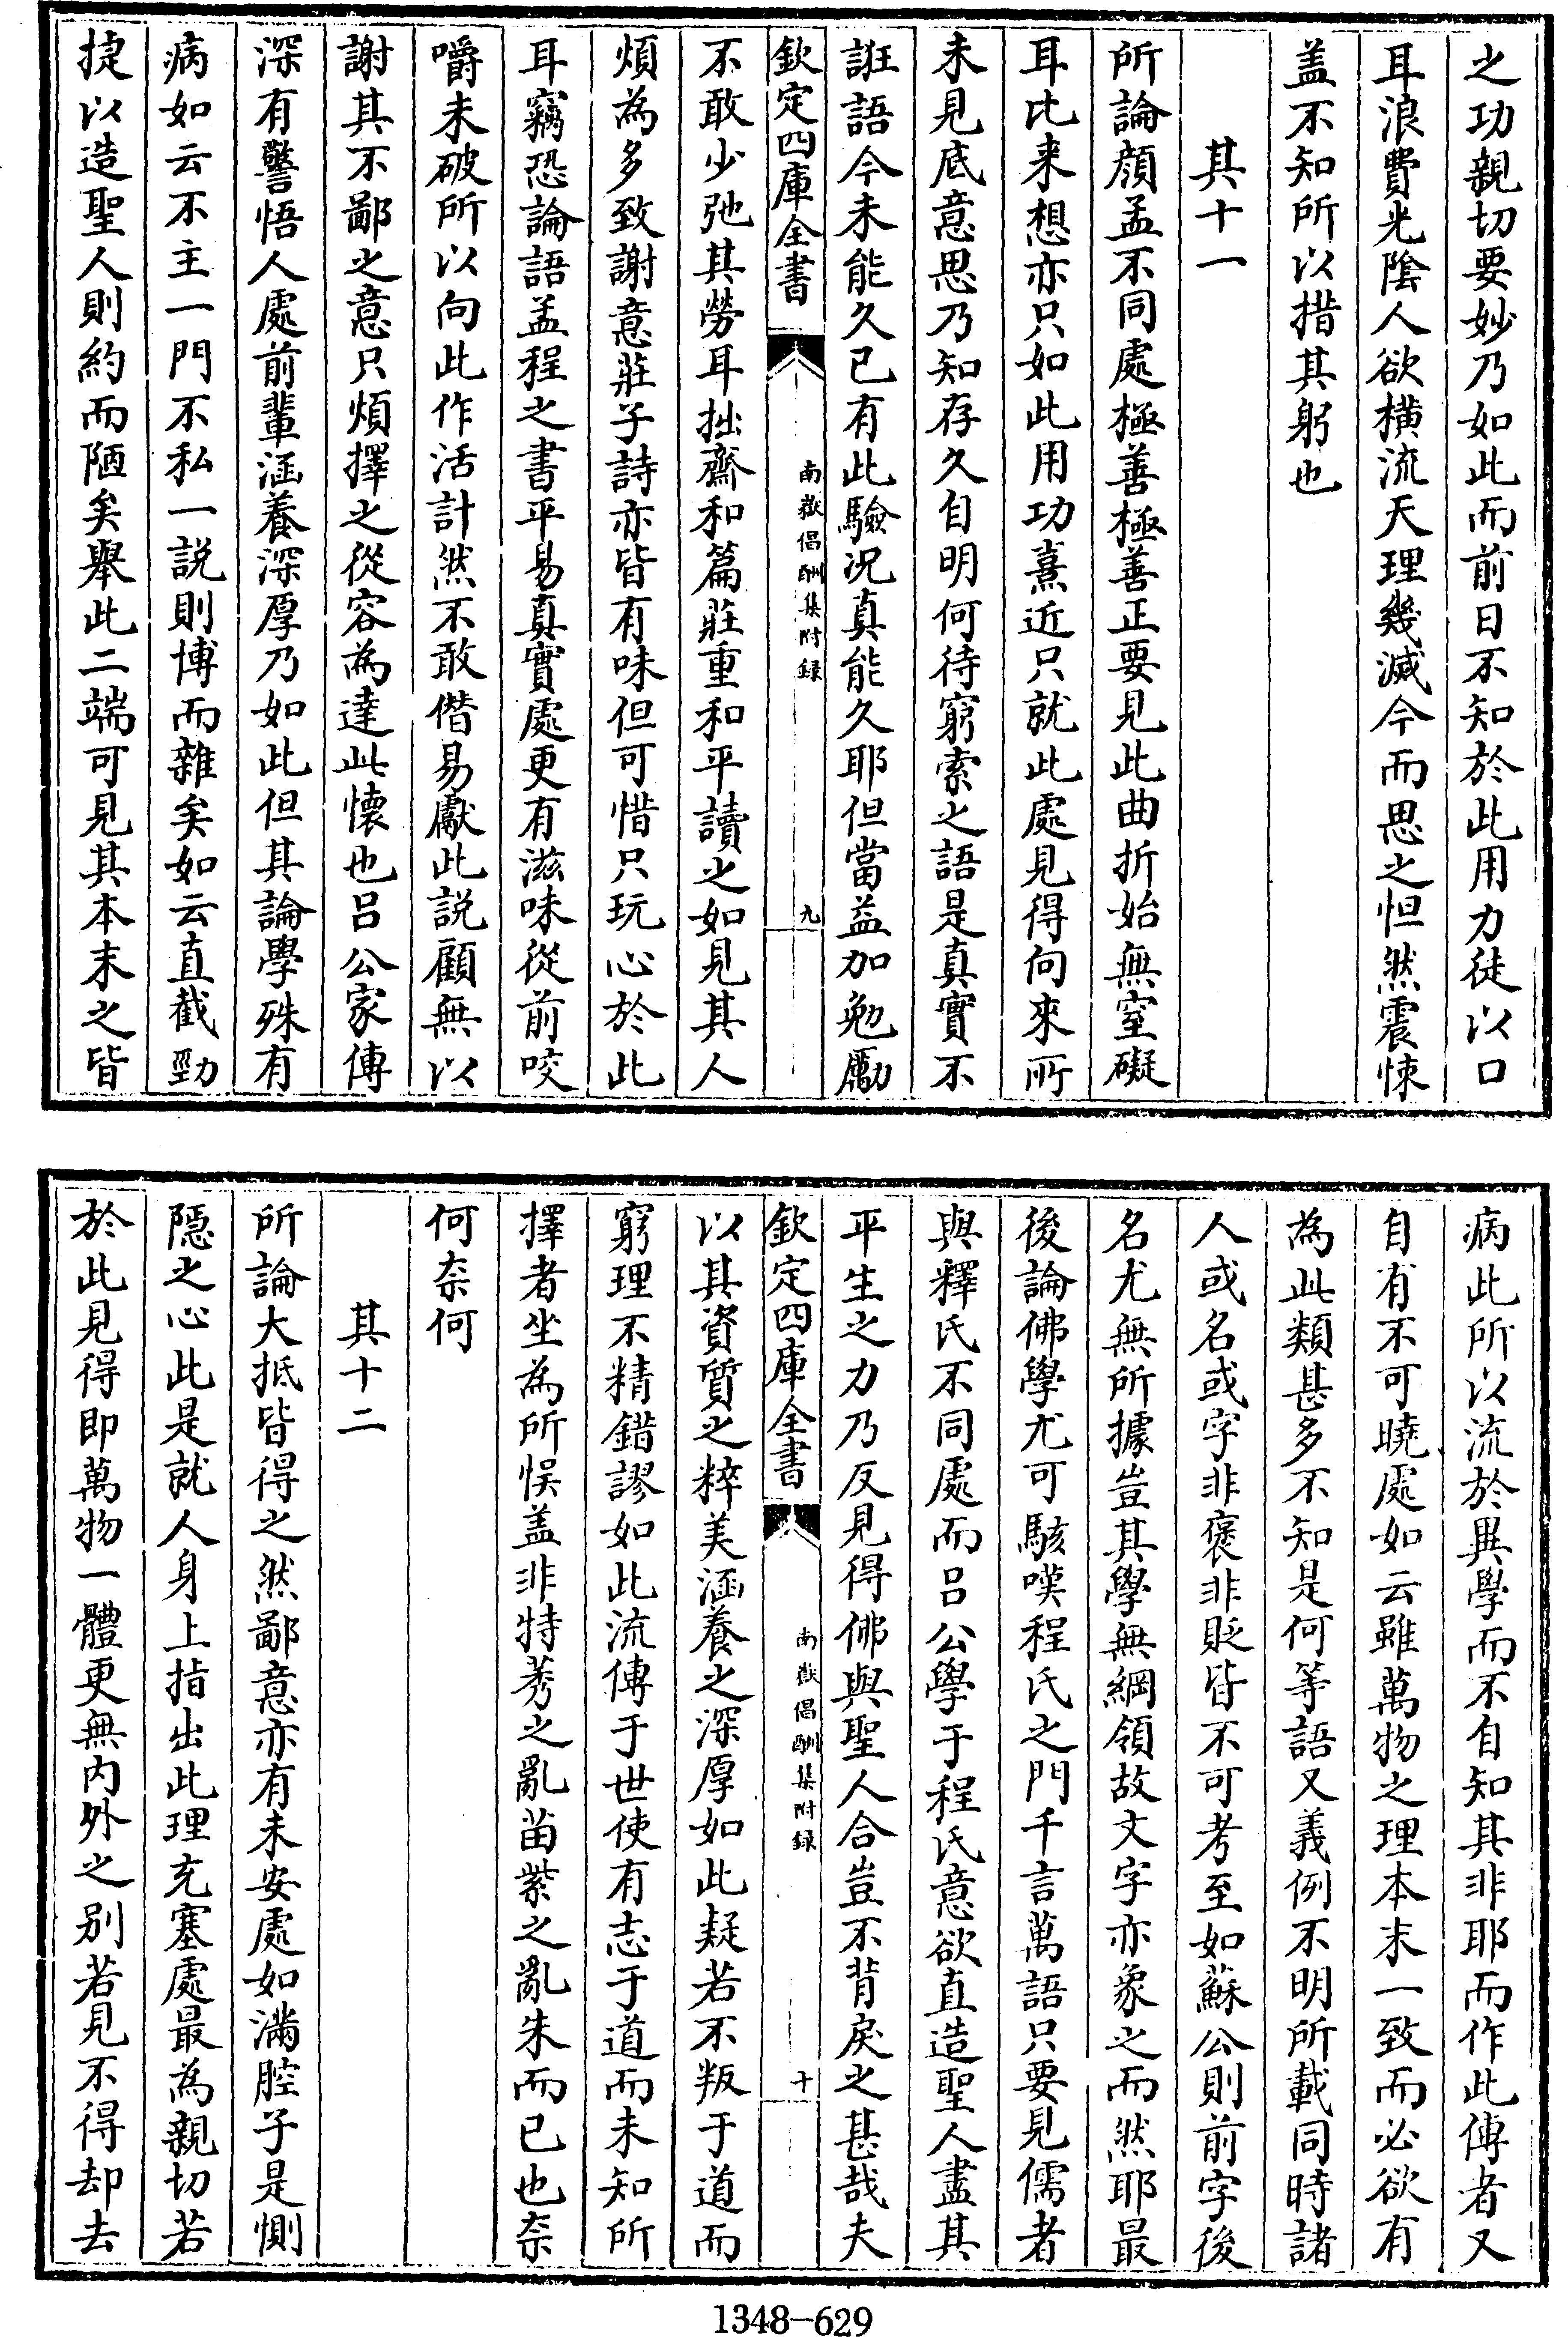 之功親切要妙乃如此而前日不知於此用力徒以口
耳浪費光陰人欲橫流天理幾滅今而思之怛然震悚
盖不知所以措其躬也
其十一
所論顔孟不同處極善極善正要見此曲折始無窒礙
耳比来想亦只如此用功熹近只就此處見得向來所
未見底意思乃知存久自明何待窮索之語是真實不
誑語今未能久已有此驗況真能久耶但當益加勉勵
欽定四庫全書
南嶽倡酬集附録
九
不敢少弛其勞耳拙齋和篇莊重和平讀之如見其人
煩為多致謝意莊子詩亦皆有味但可惜只玩心於此
耳竊恐論語孟程之書平易真實處更有滋味從前咬
嚼未破所以向此作活計然不敢僭易獻此説顧無以
謝其不鄙之意只煩擇之從容為達此懷也吕公家傳
深有警悟人處前輩涵養深厚乃如此但其論學殊有
病如云不主一門不私一説則博而雜矣如云直截勁
捷以造聖人則約而陋矣舉此二端可見其本末之皆
病此所以流於異學而不自知其非耶而作此傳者又
自有不可曉處如云雖萬物之理本末一致而必欲有
為此類甚多不知是何等語又義例不明所載同時諸
人或名或字非褒非貶皆不可考至如蘇公則前字後
名尤無所據豈其學無綱領故文字亦象之而然耶最
後論佛學尤可駭嘆程氏之門千言萬語只要見儒者
與釋氏不同處而吕公學于程氏意欲直造聖人盡其
平生之力乃反見得佛與聖人合豈不背戾之甚哉夫
欽定四庫全書
南嶽倡酬集附録
十
以其資質之粹美涵養之深厚如此疑若不叛于道而
窮理不精錯謬如此流傳于世使有志于道而未知所
擇者坐為所悞盖非特莠之亂苗紫之亂朱而已也奈
何奈何
其十二
所論大抵皆得之然鄙意亦有未安處如滿腔子是惻
隠之心此是就人身上指出此理充塞處最為親切若
於此見得即萬物一體更無内外之别若見不得却去
1348-629